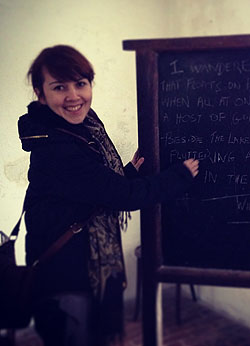 I WANDERE
THAT FLOATS ON
WHEN ALL AT O
A HOST OF G
BESIDE THE LAKE
FLUTTERING
IN THE
W